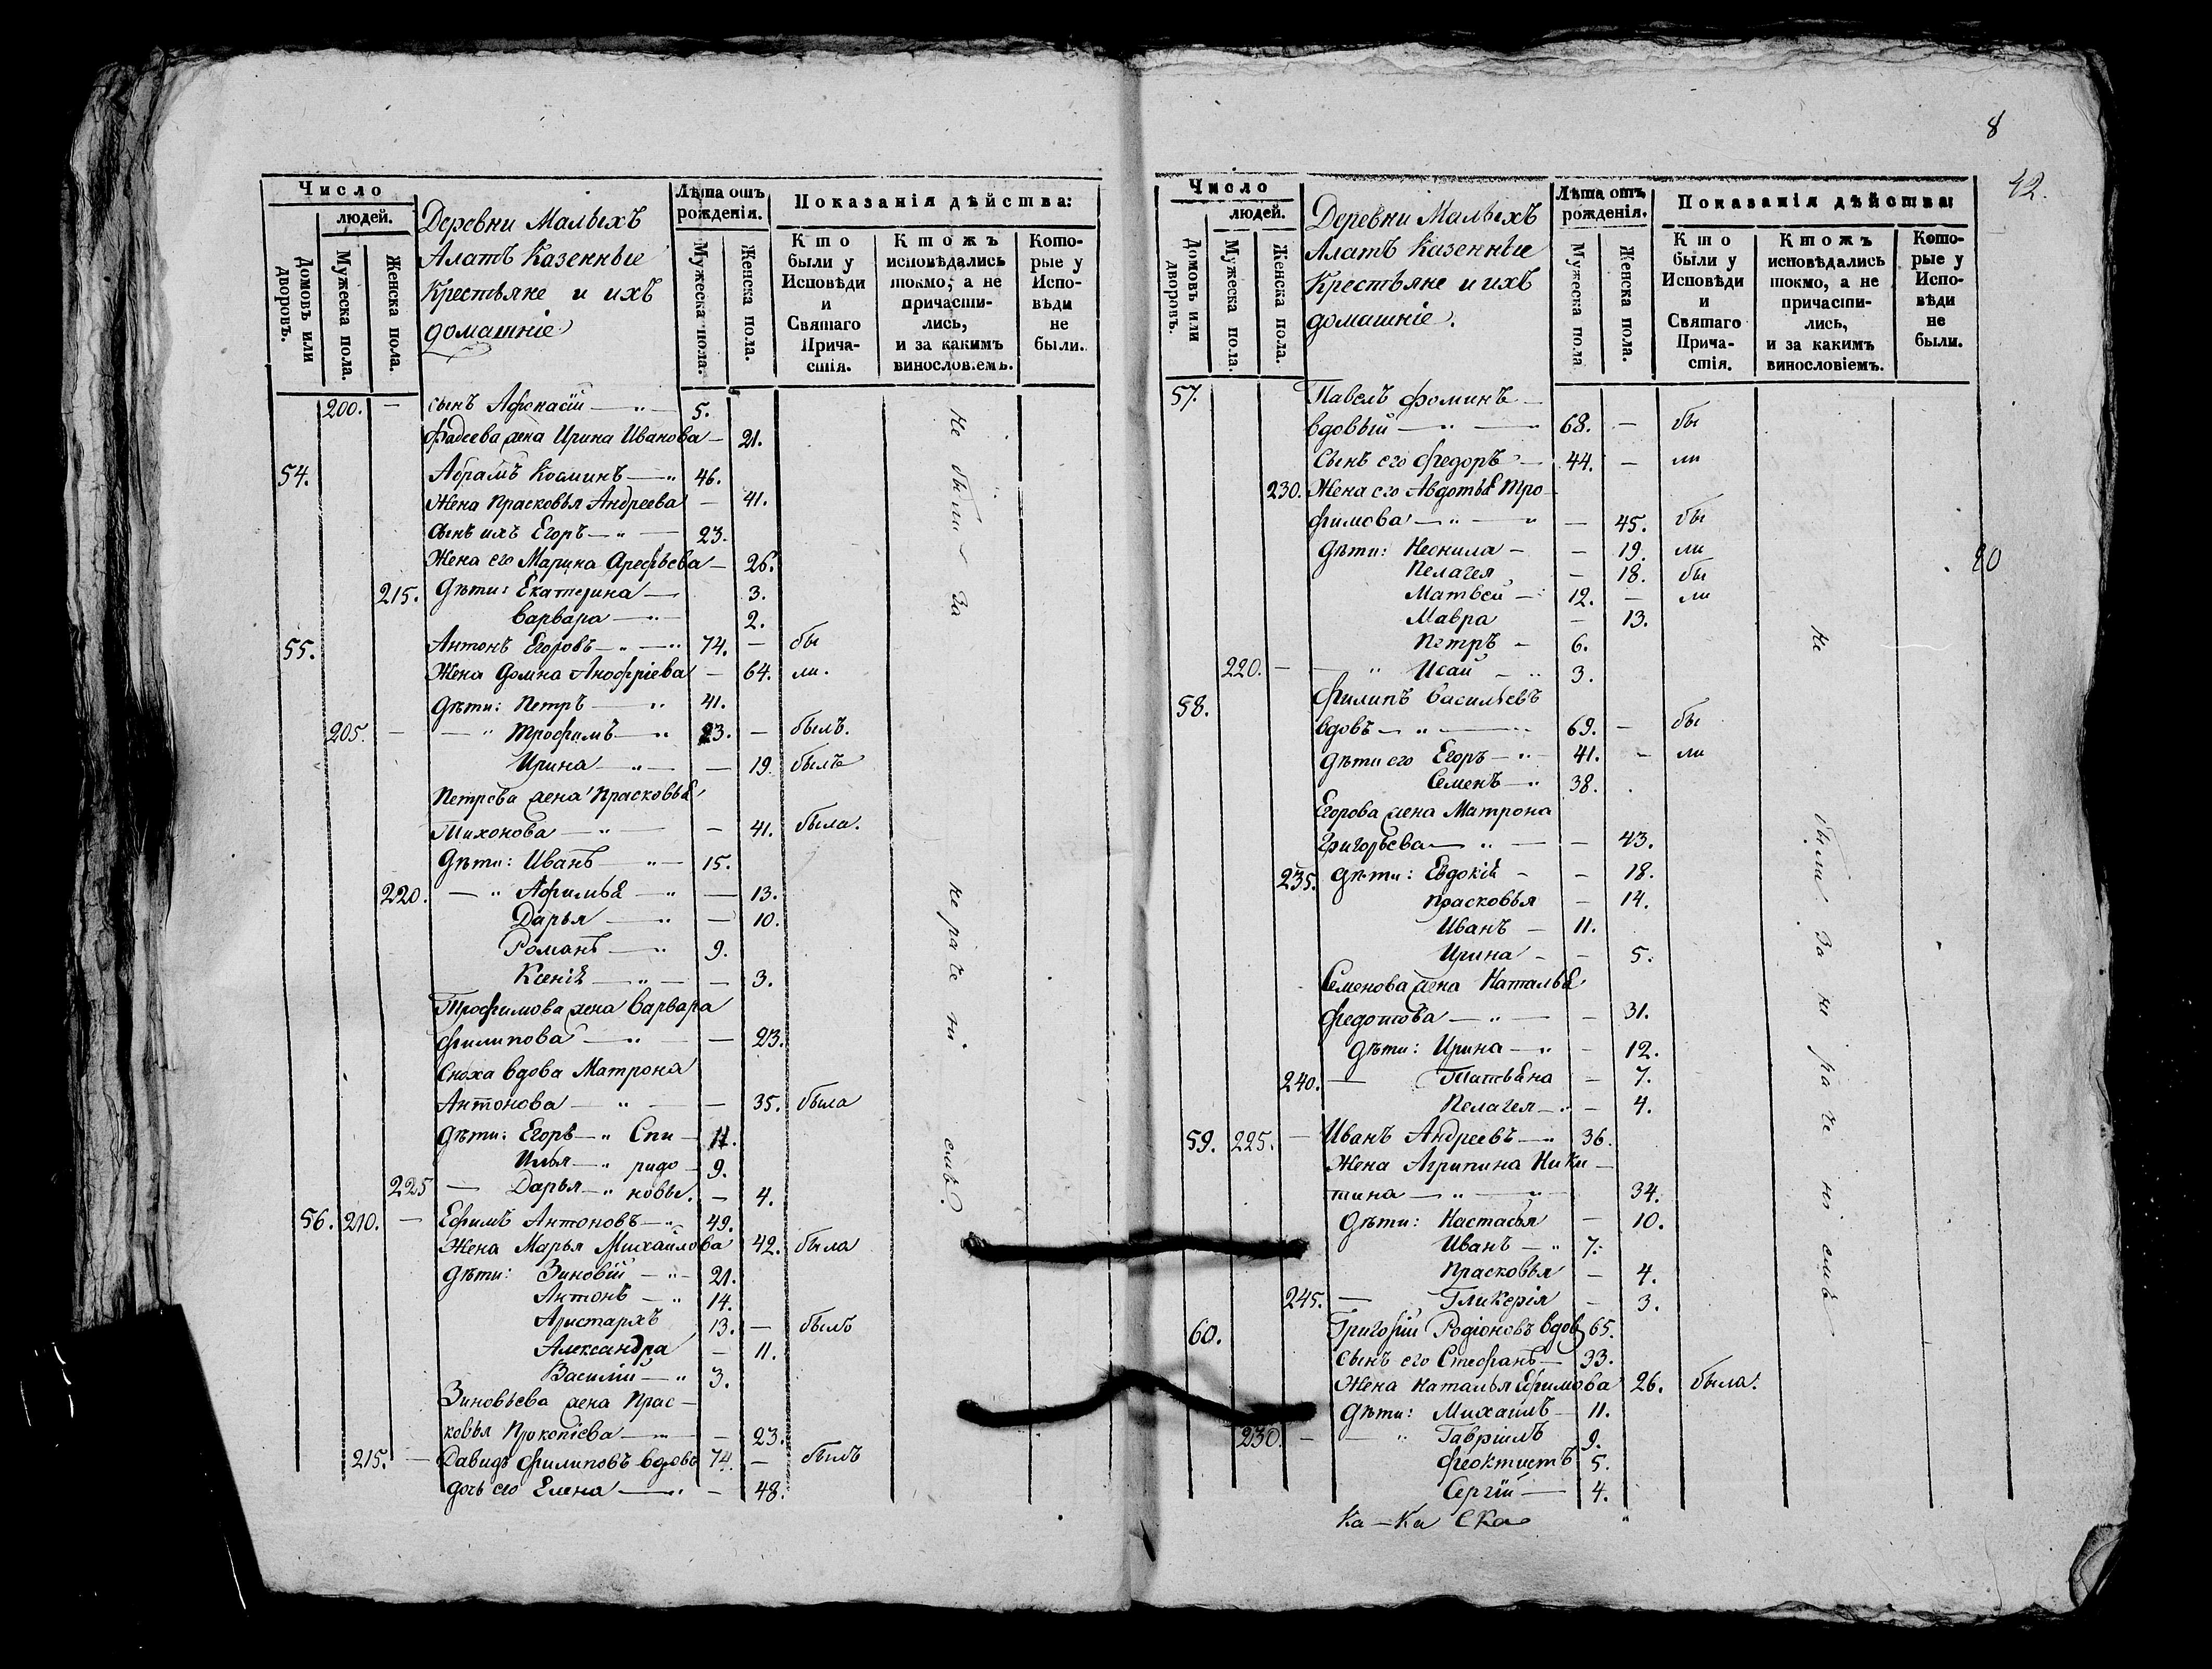 Число
людей.
Домовъ или дворовъ.
Мужеска пола.
Женска пола.
Деревни Малыхъ
Алатъ Казенные
Крестьяне и ихъ
домашніе
Лѣта отъ
рожденія.
Мужеска пола.
Женска пола.
Показанія дѣйства:
Кто
были у
Исповѣди
и
Святаго
Прича-
стія.
Ктожъ
исповѣдались
токмо, а не
причасти-
лись,
и за какимъ
винословіемъ.
Кото-
рые у
Испо-
вѣди
не
были.
200. — сынъ Афонасій — 5.
Фадеева жена Ирина Иванова — 21.
54. Абрамъ Косминъ — 46.
Жена Прасковья Андреева — 41.
Сынъ ихъ Егоръ — 23.
Жена его Марина Арефьева — 26.
215. Дѣти: Екатерина — 3.
Варвара — 2.
55. Антонъ Егоровъ — 74. — бы
Жена Домна Анофріева — 64. ли.
Дѣти: Петръ — 41.
205. — Трофимъ — 23. — былъ.
Ирина — 19. былъ
Петрова жена Прасковья
Тихонова — 41. была.
Дѣти: Иванъ — 15.
220. — Афимья — 13.
Дарья — 10.
Романъ — 9.
Ксенія — 3.
Трофимова жена Варвара
Филипова — 23.
Сноха вдова Матрона
Антонова — 35. была
Дѣти: Егоръ — Спи — 11.
Илья — ридо — 9.
225 — Дарья — новы. — 4.
56. 210. — Ефимъ Антоновъ — 49.
Жена Марья Михайлова 42. была
Дѣти: Зиновій — 21.
Антонъ — 14.
Аристархъ 13. — былъ
Александра — 11.
Василій — 3.
Зиновьева жена Прас-
ковья Прокопіева — 23.
215. — Давидъ Филиповъ вдовъ 74. — былъ
дочь его Елена — 48.
не были за нераченіемъ.
8
42.
Число
людей.
Домовъ или дворовъ.
Мужеска пола
Женска пола.
Деревни Малыхъ
Алатъ Казенные
Крестьяне и ихъ
домашніе.
Лѣта отъ
рожденія.
Мужеска пола
Женска пола.
Показанія дѣйства:
Кто
были у
Исповѣди
и
Святаго
Прича-
стія.
Ктожъ
исповѣдались
токмо, а не
причасти-
лись,
и за какимъ
винословіемъ.
Кото-
рые у
Испо-
вѣди
не
были.
57. Павелъ Фоминъ —
вдовый — 68. — бы
Сынъ его Федоръ — 44. — ли
230. Жена его Авдотья Тро-
фимова — 45. бы
Дѣти: Неонила — 19. ли
Пелагея — 18. бы
Матвей — 12. — ли
Мавра — 13.
Петръ — 6.
220. — Исай — 3.
58. Филипъ Васильевъ
вдовъ — 69. — бы
Дѣти его Егоръ — 41. — ли
Семенъ — 38.
Егорова жена Матрона
Григорьева — 43.
235. Дѣти: Евдокія — 18.
Прасковья — 14.
Иванъ — 11.
Ирина — 5.
Семенова жена Наталья
Федотова — 31.
Дѣти: Ирина — 12.
240. — Татьяна — 7.
Пелагея — 4.
59. 225. — Иванъ Андреевъ — 36.
Жена Агрипина Ники-
тина — 34.
Дѣти: Настасья — 10.
Иванъ — 7.
Прасковья — 4.
245. — Гликерія — 3.
60. Григорій Родіоновъ вдов 65.
Сынъ его Стефанъ — 33.
Жена Наталья Ефимова 26. была.
Дѣти: Михаилъ — 11.
230. — Гавріилъ 9.
Феоктистъ 5.
Сергій — 4.
не были за нераченіемъ
20